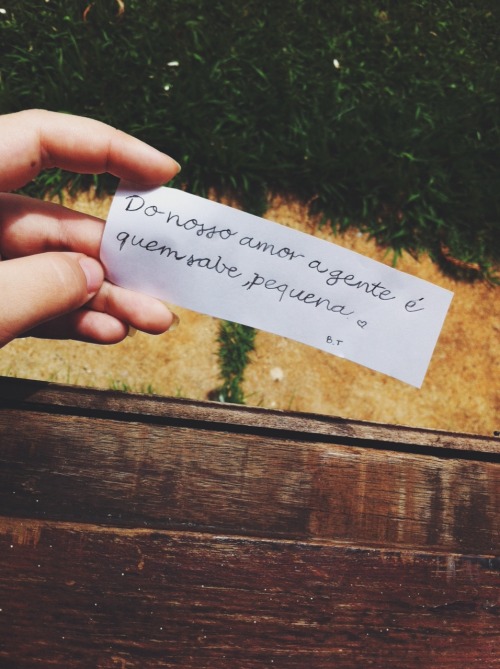 Do nosso amor a gente é
quem sabe, pequena. ♡
B.T